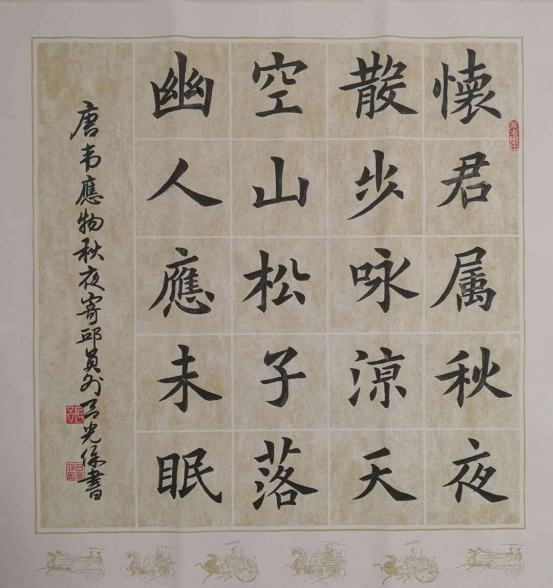 懐君属秋夜
散步咏凉天
空山松子落
幽人應未眠
唐韦應物秋夜寄邱員外 吕光保書